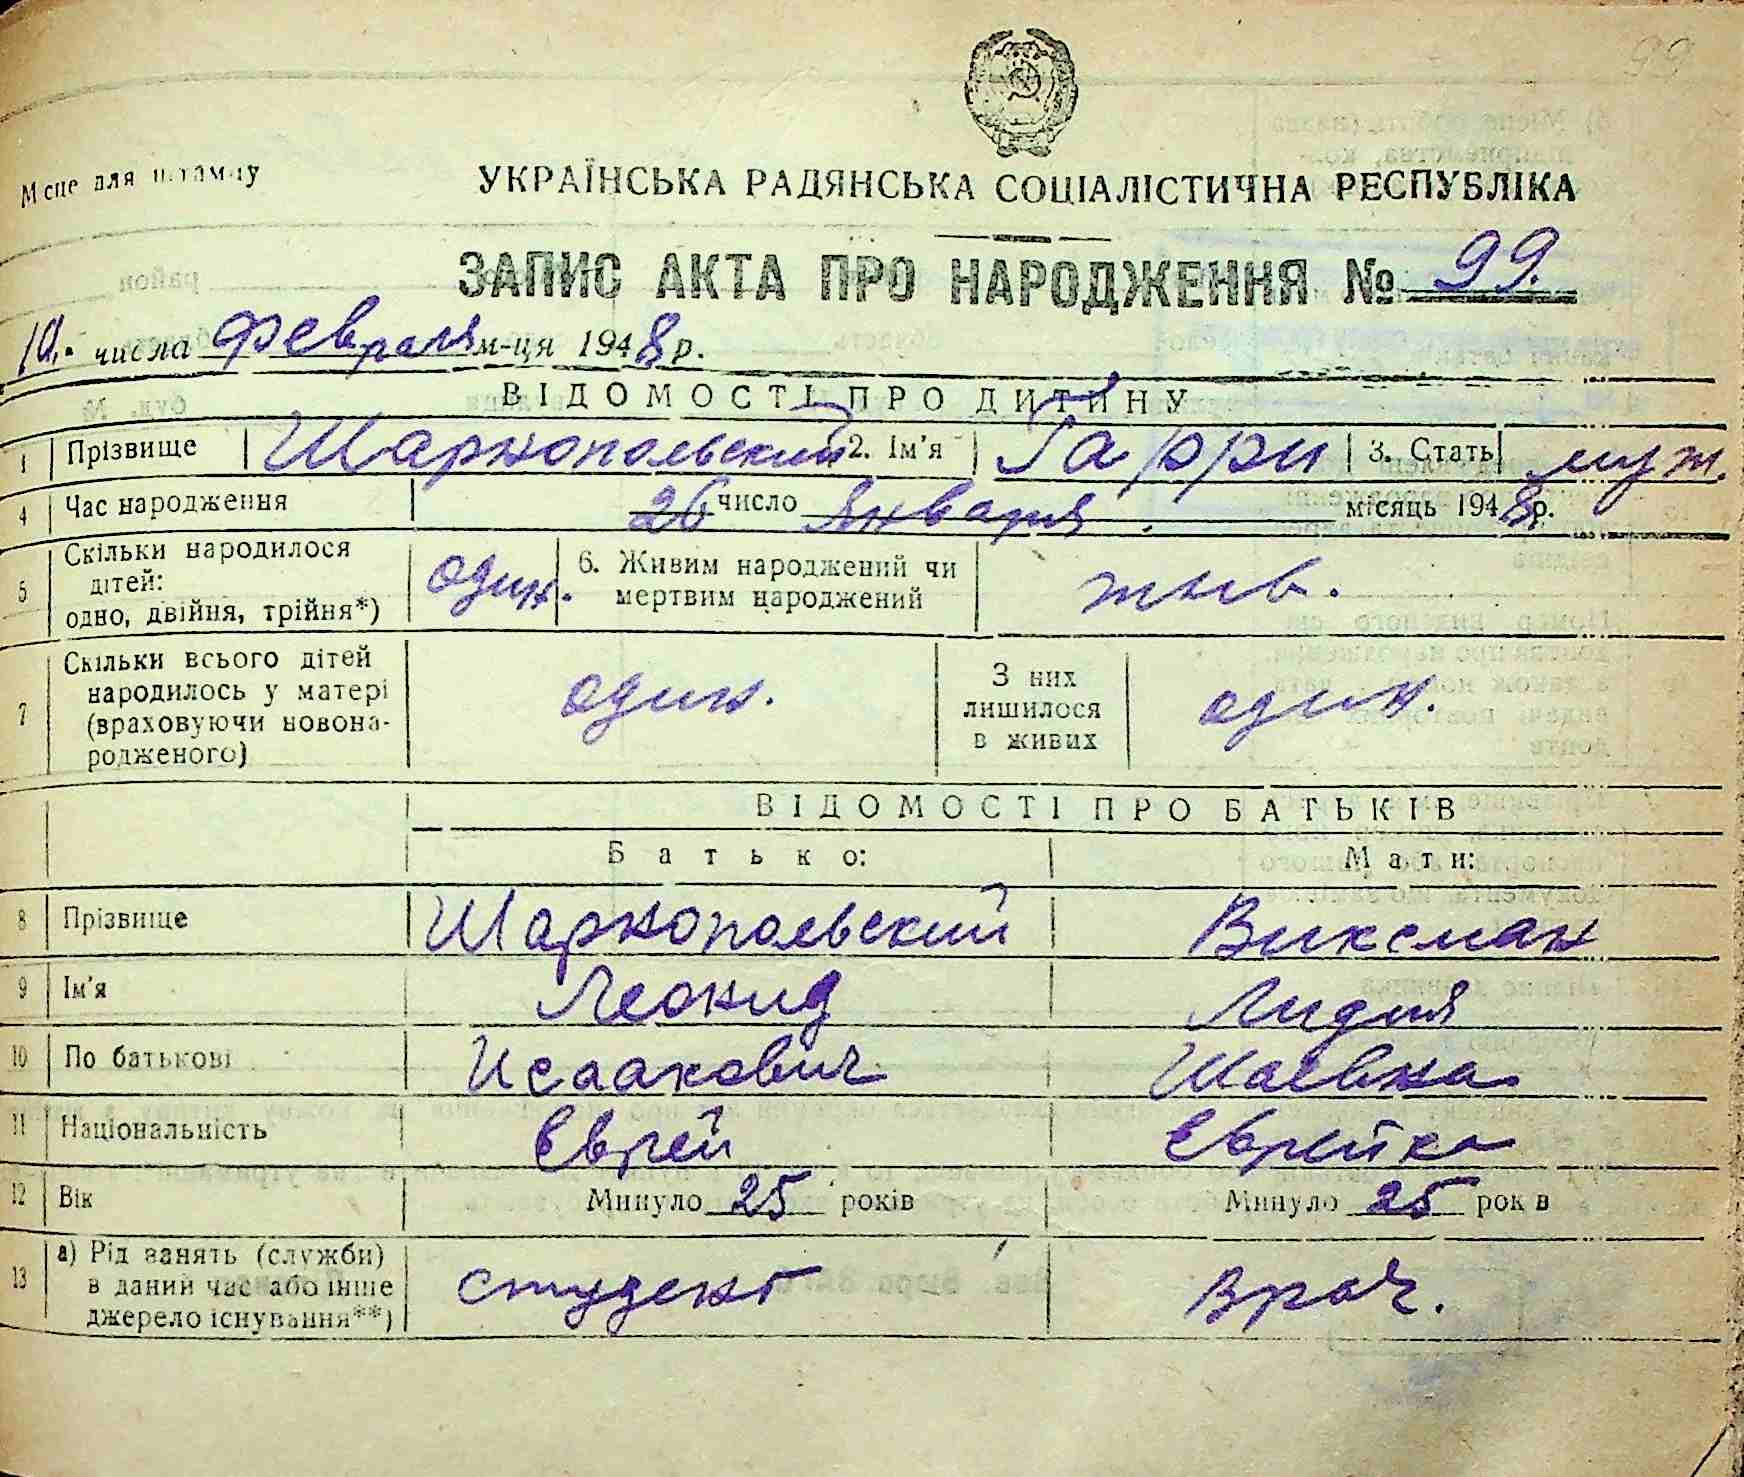 99
Місце для штампу
УКРАЇНСЬКА РАДЯНСЬКА СОЦІАЛІСТИЧНА РЕСПУБЛІКА
ЗАПИС АКТА ПРО НАРОДЖЕННЯ № 99.
10. числа Февраля м-ця 1948 р.
ВІДОМОСТІ ПРО ДИТИНУ
1 Прізвище Шаркопольский 2. Ім'я Гарри 3. Стать муж.
4 Час народження 26 число Января. місяць 1948 р.
5 Скільки народилося дітей: одно, двійня, трійня*) один. 6. Живим народжений чи мертвим народжений жив.
7 Скільки всього дітей народилось у матері (враховуючи новонародженого) один. З них лишилося в живих один.
ВІДОМОСТІ ПРО БАТЬКІВ
Батько: Мати:
8 Прізвище Шаркопольский Виксман
9 Ім'я Леонид Лидия
10 По батькові Исаакович Шаевна
11 Національність Еврей Еврейка
12 Вік Минуло 25 років Минуло 25 років
13 а) Рід занять (служби) в даний час або інше джерело існування**) студент Врач.